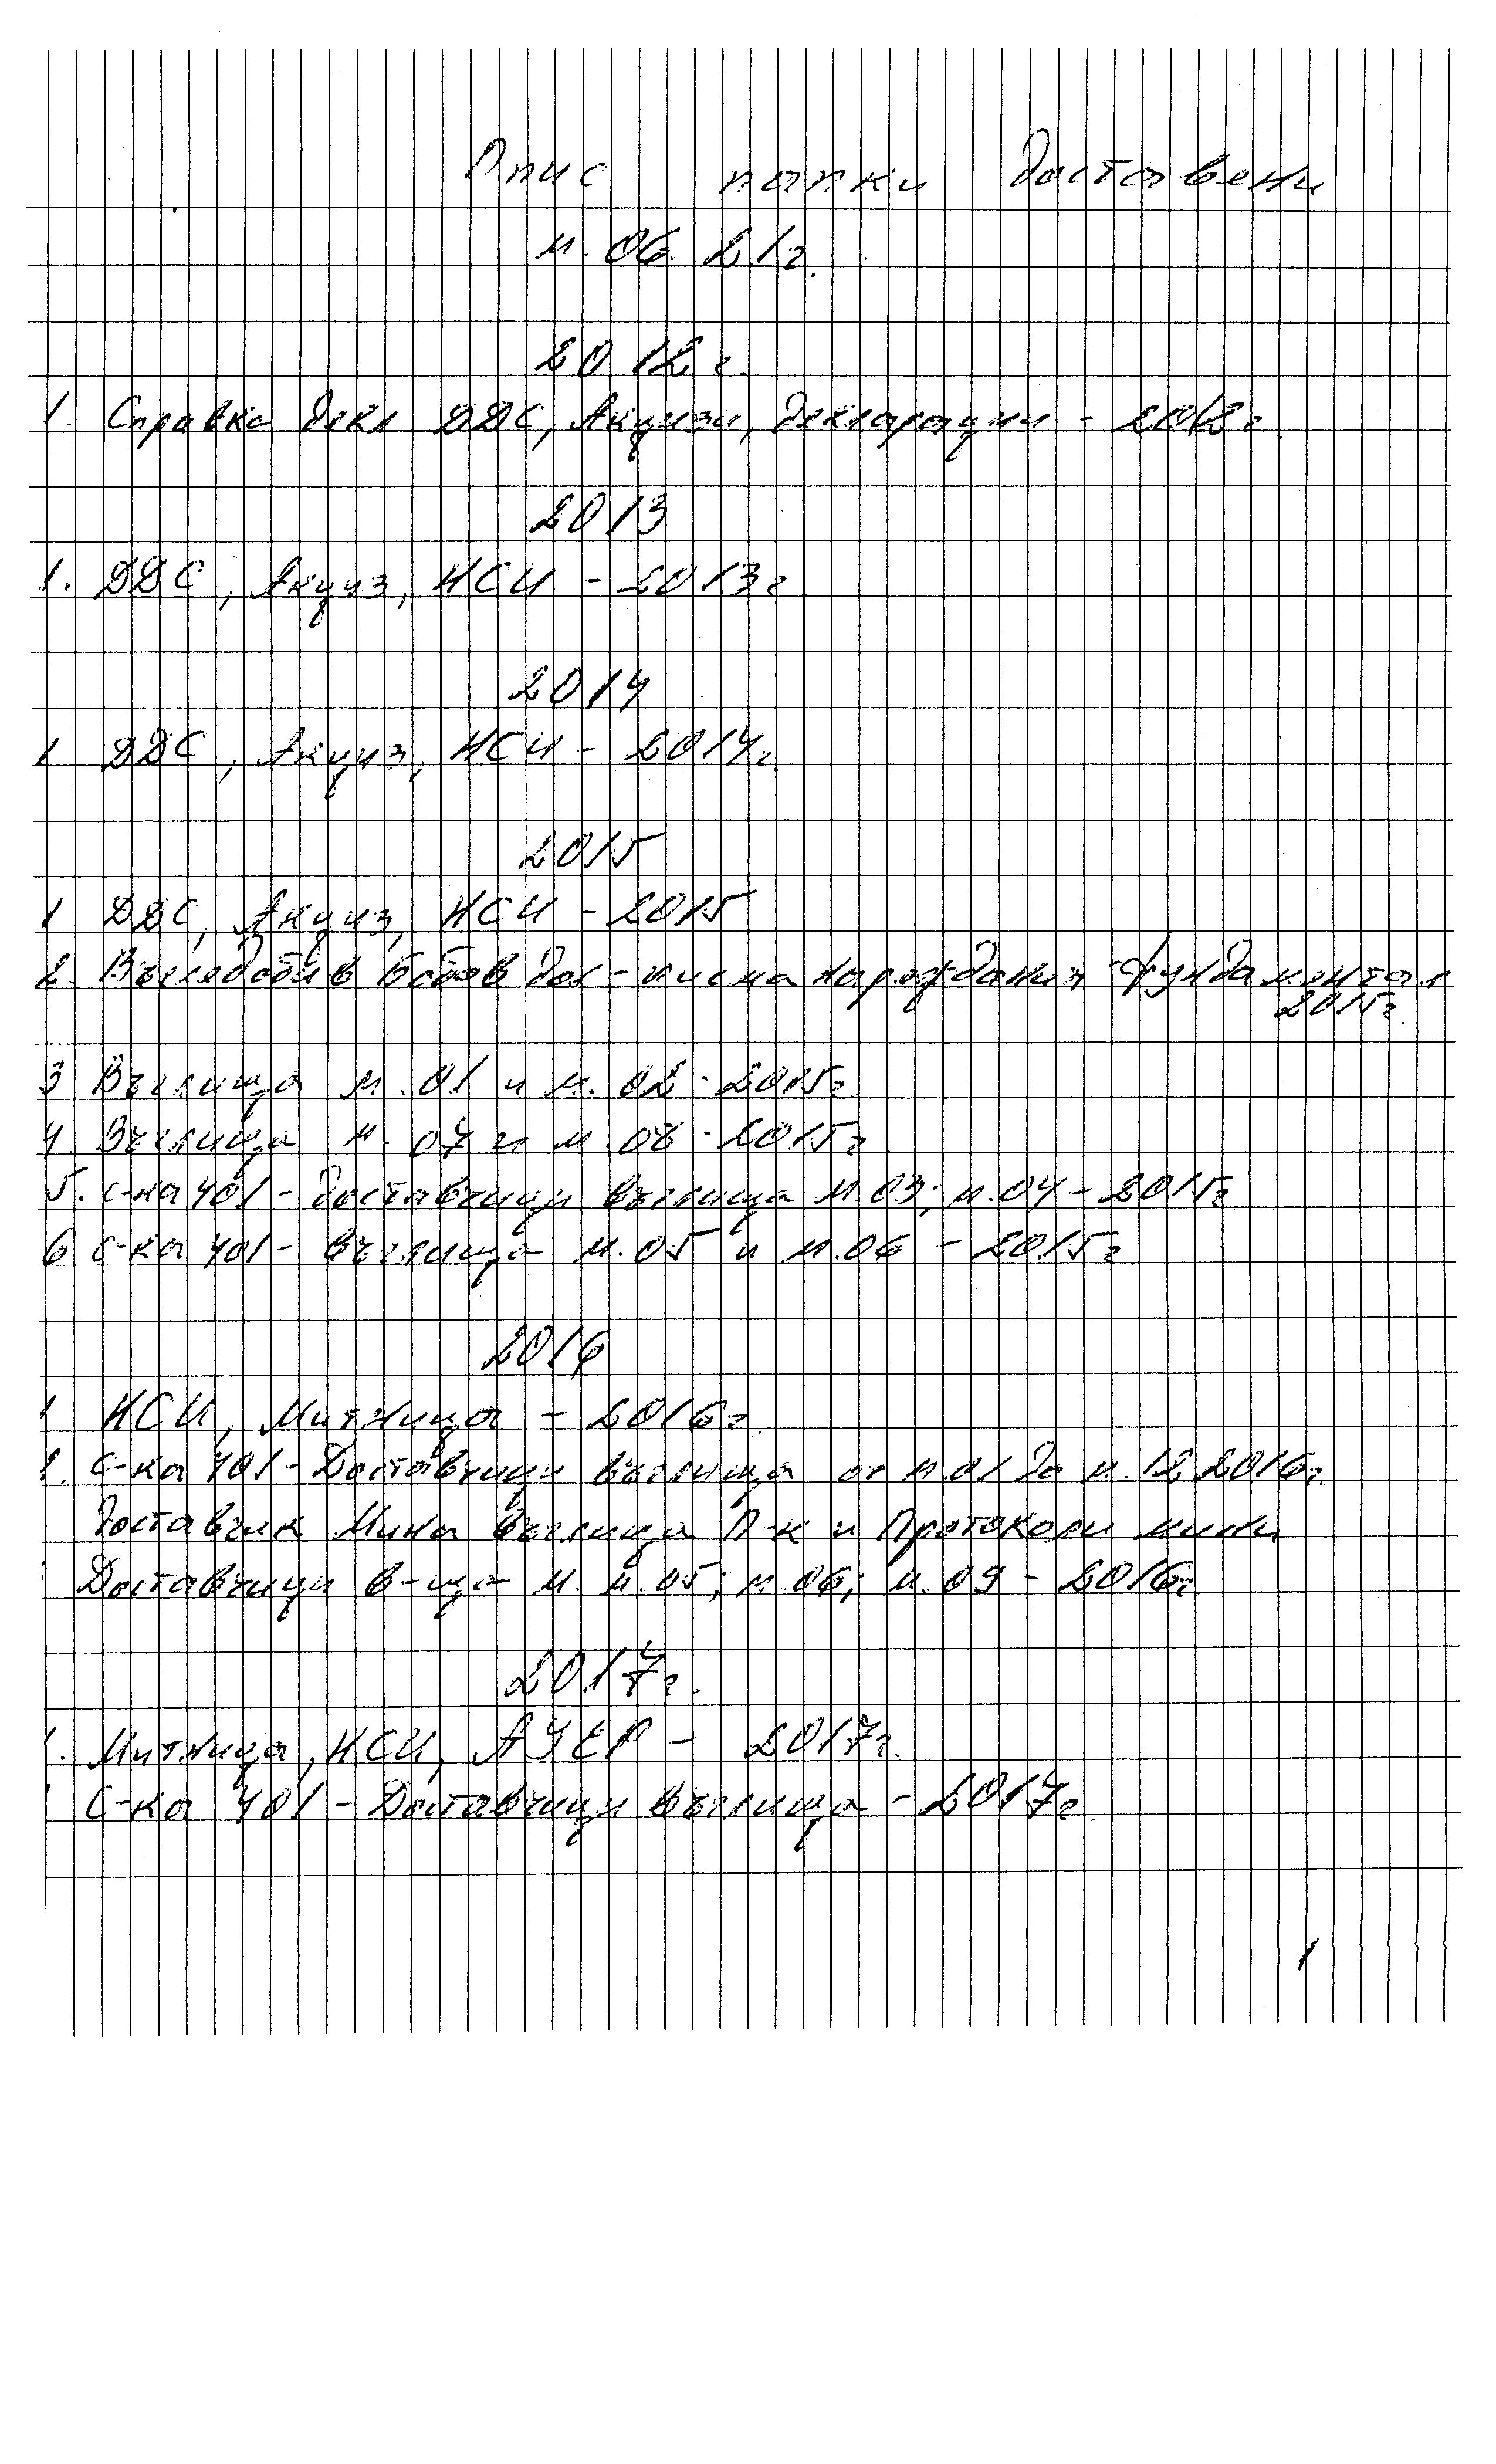 Опис папки доставени
м. 06. 21г.
2012 г.
1. Справка декл ДДС, Акцизи, декларации - 2012 г.
2013
1. ДДС, Акциз, НСИ - 2013 г.
2014
1 ДДС, Акциз, НСИ - 2014 г.
2015
1 ДДС, Акциз, НСИ - 2015
2. Въгледобив Бобов дол - писма
2015 г.
3 Въглища м. 01 и м. 02 - 2015 г.
4. Въглища м. 07 и м. 08 - 2015 г.
5. с-ка 401 - доставчици въглища м. 03; м. 04 - 2015 г.
6 с-ка 401 - въглища м. 05 и м. 06 - 2015 г.
2016
1 НСИ, Митница - 2016 г.
1. с-ка 401 - Доставчици въглища от м 01 до м. 12 2016 г.
доставчик Мини въглища П-к и Протоколи
Доставчици в-ща м. м. 05; м 06; м. 09 - 2016 г.
2017 г.
1. Митница, НСИ, АУЕР - 2017 г.
С-ка 401 - Доставчици въглища - 2017 г.
1